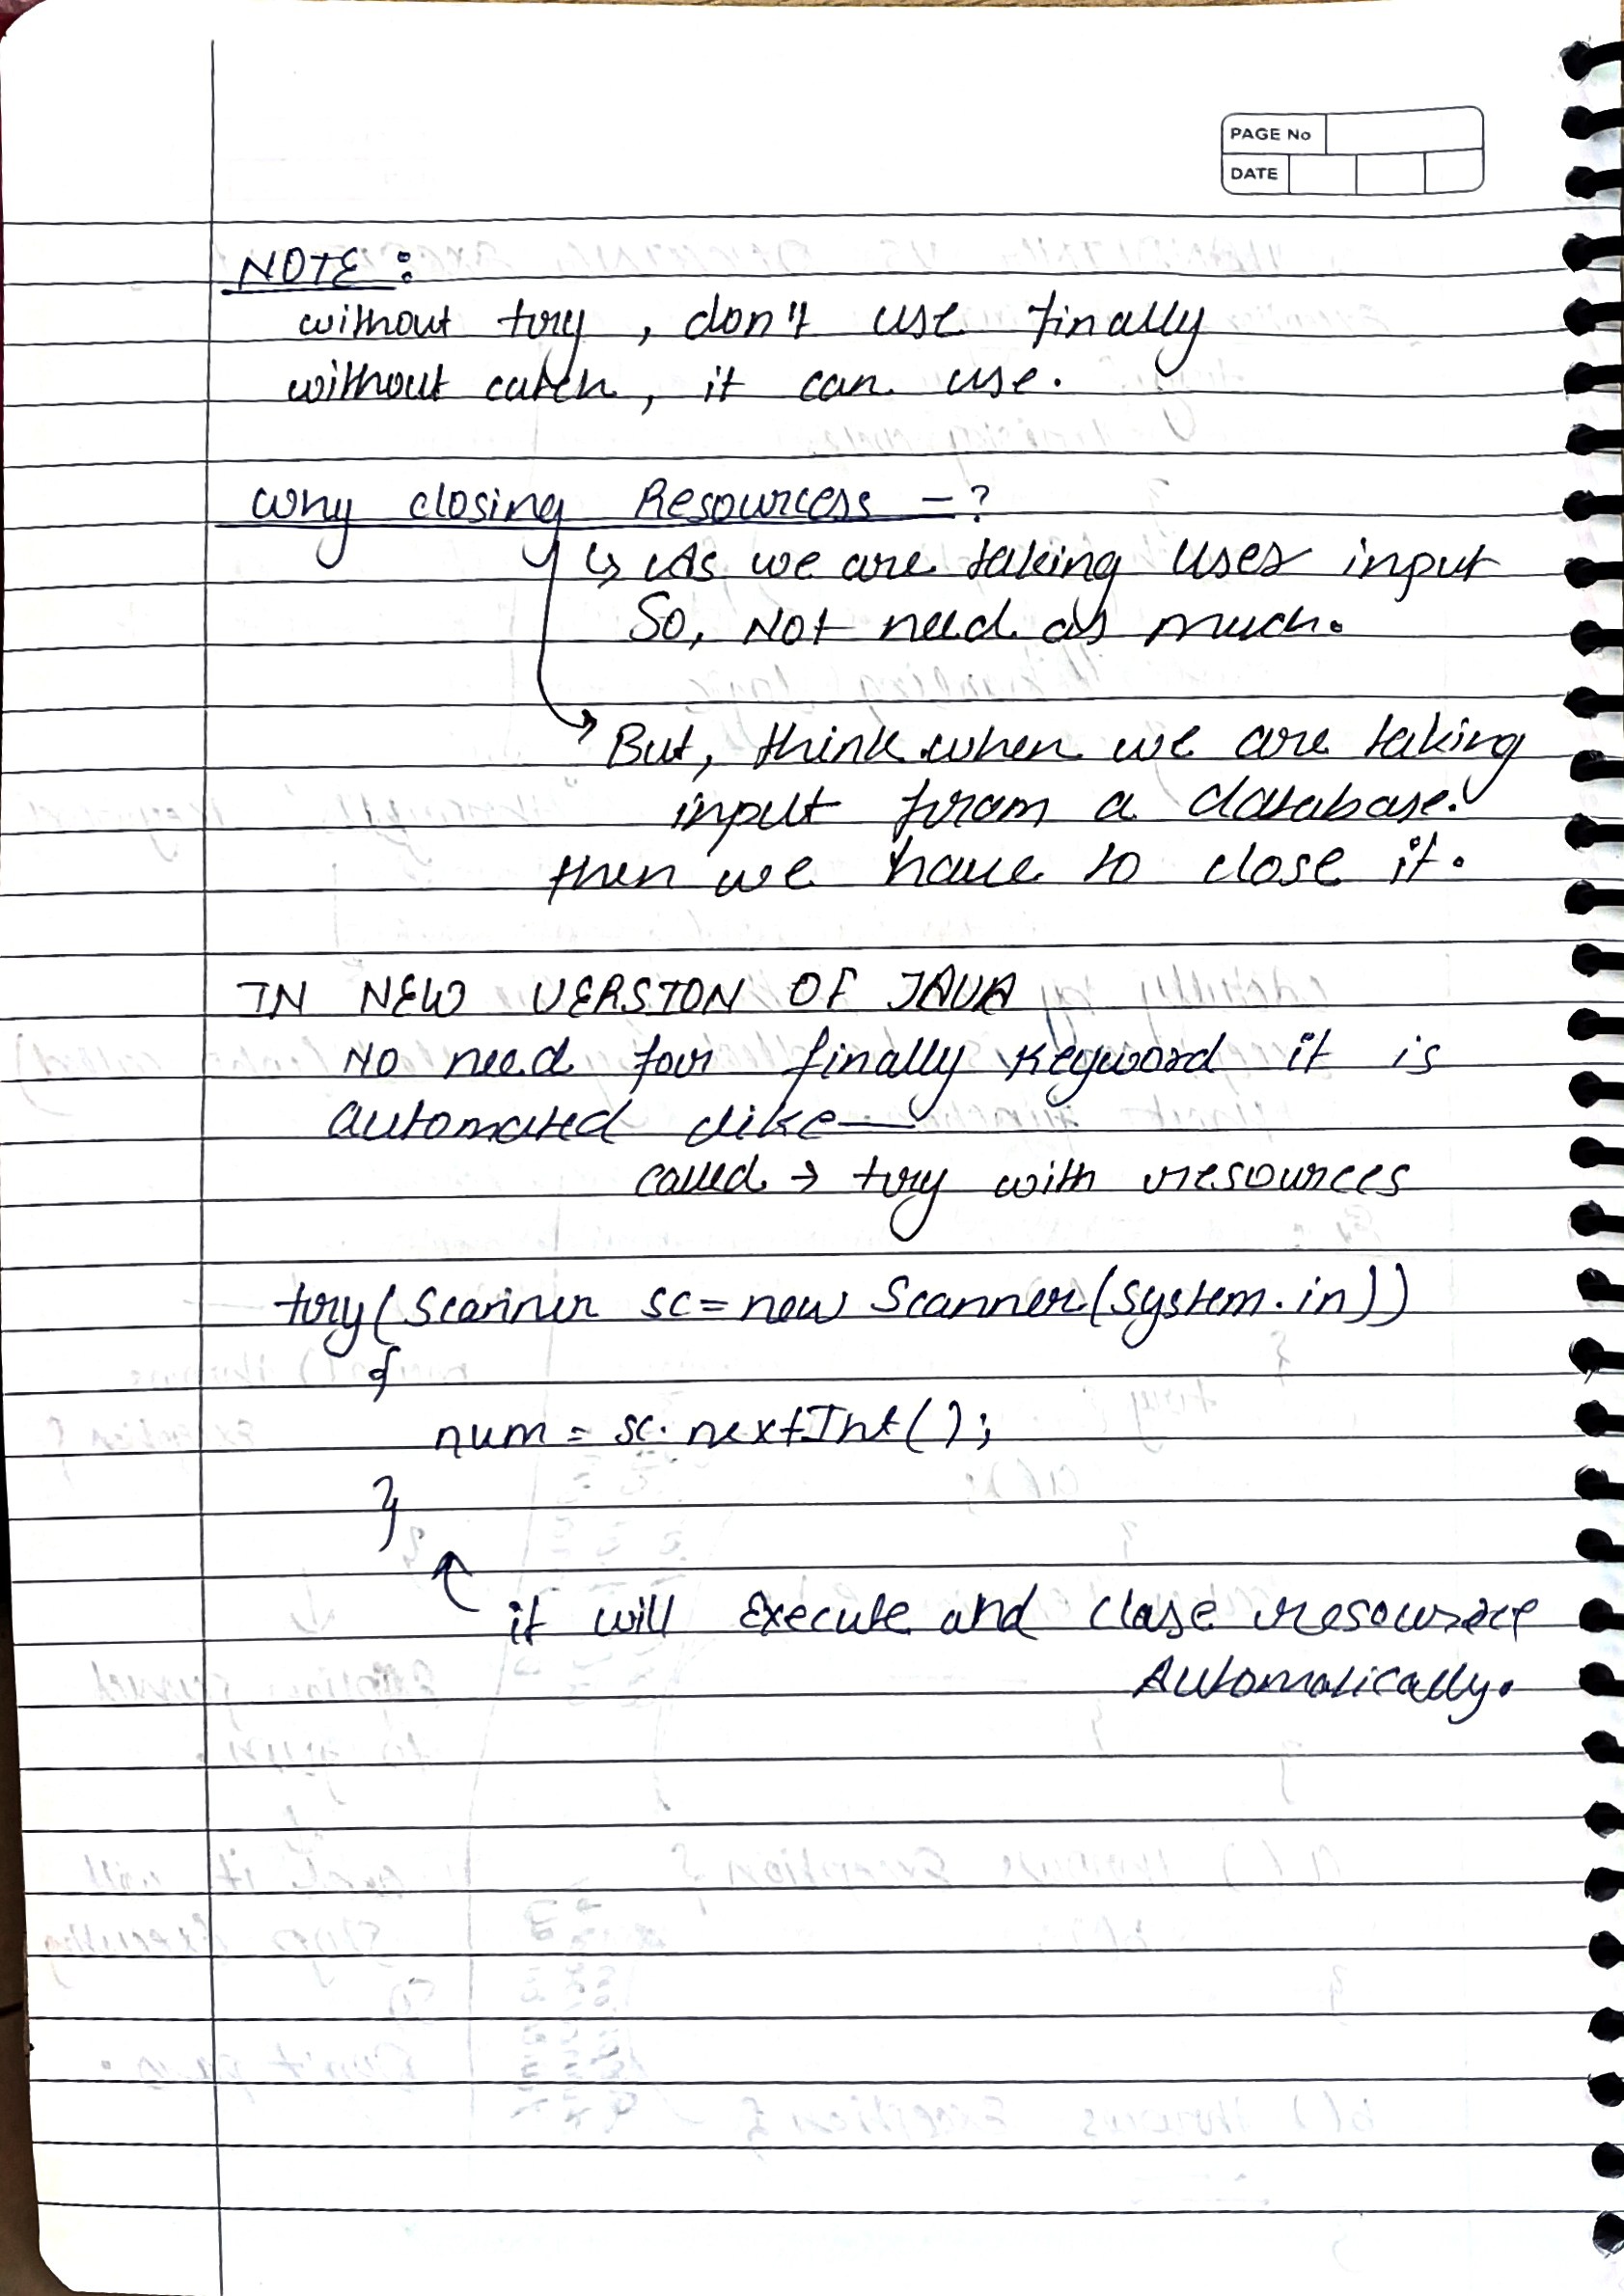 PAGE No
DATE
NOTE :
without try , don't use finally
without catch , it can use.
Why closing Resourcess = ?
↳ As we are taking user input
So, Not need as much.
→ But, think when we are taking
input from a database.
then we have to close it.
IN NEW VERSION OF JAVA
No need for finally keyword it is
automated like—
called → try with resources
try(Scanner sc = new Scanner(System.in))
{
num = sc.nextInt();
}
it will Execute and close resource
Automatically.